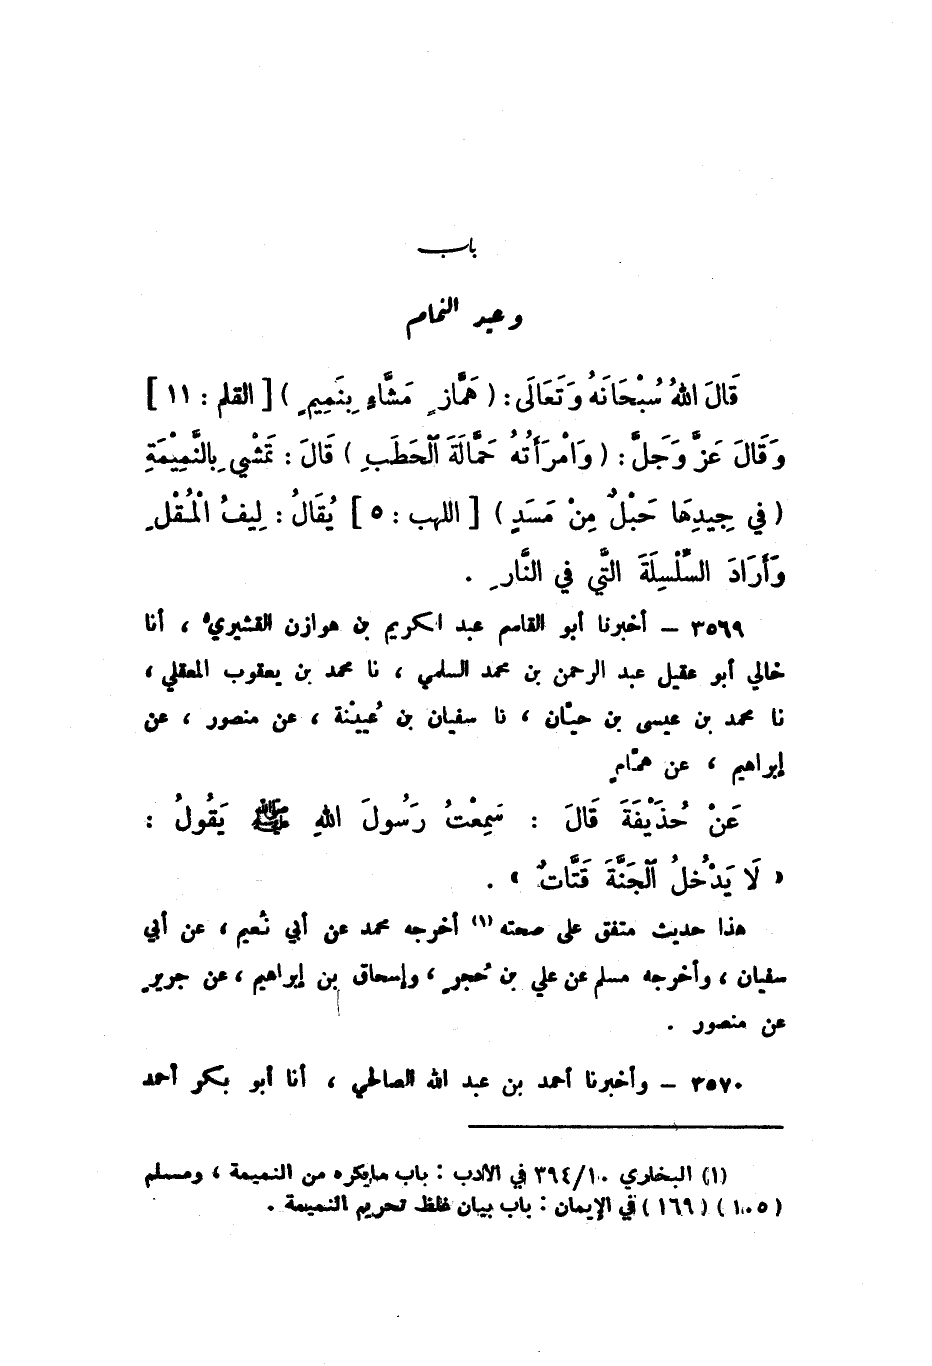 باب
وعيد النمام
قَالَ اللهُ سُبْحَانَهُ وَتَعَالَى : ( هَمَّازٍ مَشَّاءٍ بِنَمِيمٍ ) [ القلم : ١١ ]
وَقَالَ عَزَّ وَجَلَّ : ( وَامْرَأَتُهُ حَمَّالَةَ الْحَطَبِ ) قَالَ : تَمْشِي بِالنَّمِيْمَةِ
( فِي جِيدِهَا حَبْلٌ مِنْ مَسَدٍ ) [ اللهب : ٥ ] يُقَالُ : لِيفُ الْمُقْلِ
وَأَرَادَ السِّلْسِلَةَ الَّتِي فِي النَّارِ .
٣٥٦٩ – أخبرنا أبو القاسم عبد الكريم بن هوازن القشيري ، أنا
خالي أبو عقيل عبد الرحمن بن محمد السلمي ، نا محمد بن يعقوب المعقلي ،
نا محمد بن عيسى بن حيّان ، نا سفيان بن عُيينْة ، عن منصور ، عن
إبراهيم ، عن همّامٍ
عَنْ حُذَيْفَةَ قَالَ : سَمِعْتُ رَسُولَ اللهِ ﷺ يَقُولُ :
« لَا يَدْخُلُ الْجَنَّةَ قَتَّاتٌ » .
هذا حديث متفق على صحته (١) أخرجه محمد عن أبي نُعيم ، عن أبي
سفيان ، وأخرجه مسلم عن علي بن حُجرٍ ، وإسحاق بن إبراهيم ، عن جريرٍ
عن منصور .
٣٥٧٠ – وأخبرنا أحمد بن عبد الله الصالحي ، أنا أبو بكر أحمد
(١) البخاري ٣٩٤/١٠ في الأدب : باب مايكره من النميمة ، ومسلم
(١٠٥) (١٦٩) في الإيمان : باب بيان غلظ تحريم النميمة .